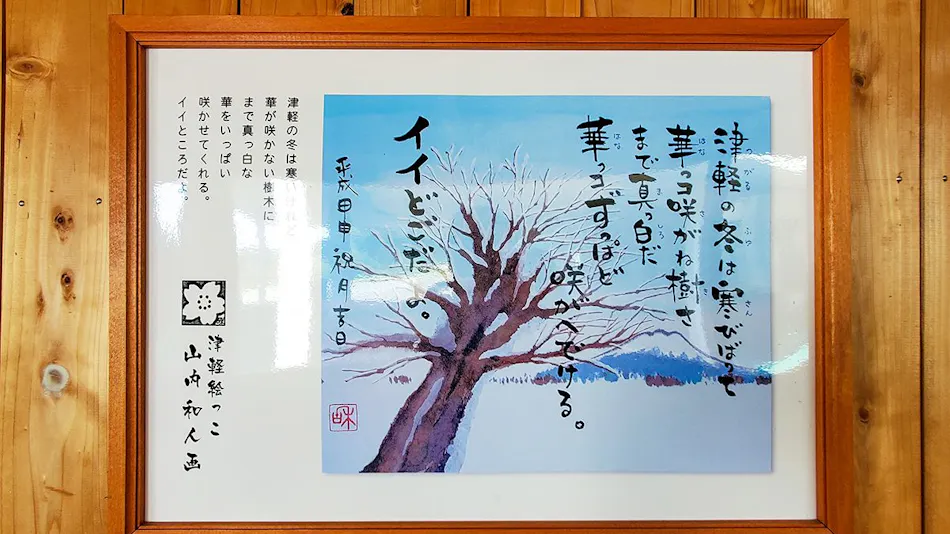 津軽の冬は寒びばって
華っコ咲がね樹さ
まで真っ白だ
華っコずっぱど
咲がへでける。
イイどごだ の。
平成 申 祝月吉日
津軽の冬は寒い
華が咲かない樹木に
まで真っ白な
華をいっぱい
咲かせてくれる。
イイところだよ。
津軽絵っこ
山内和人画